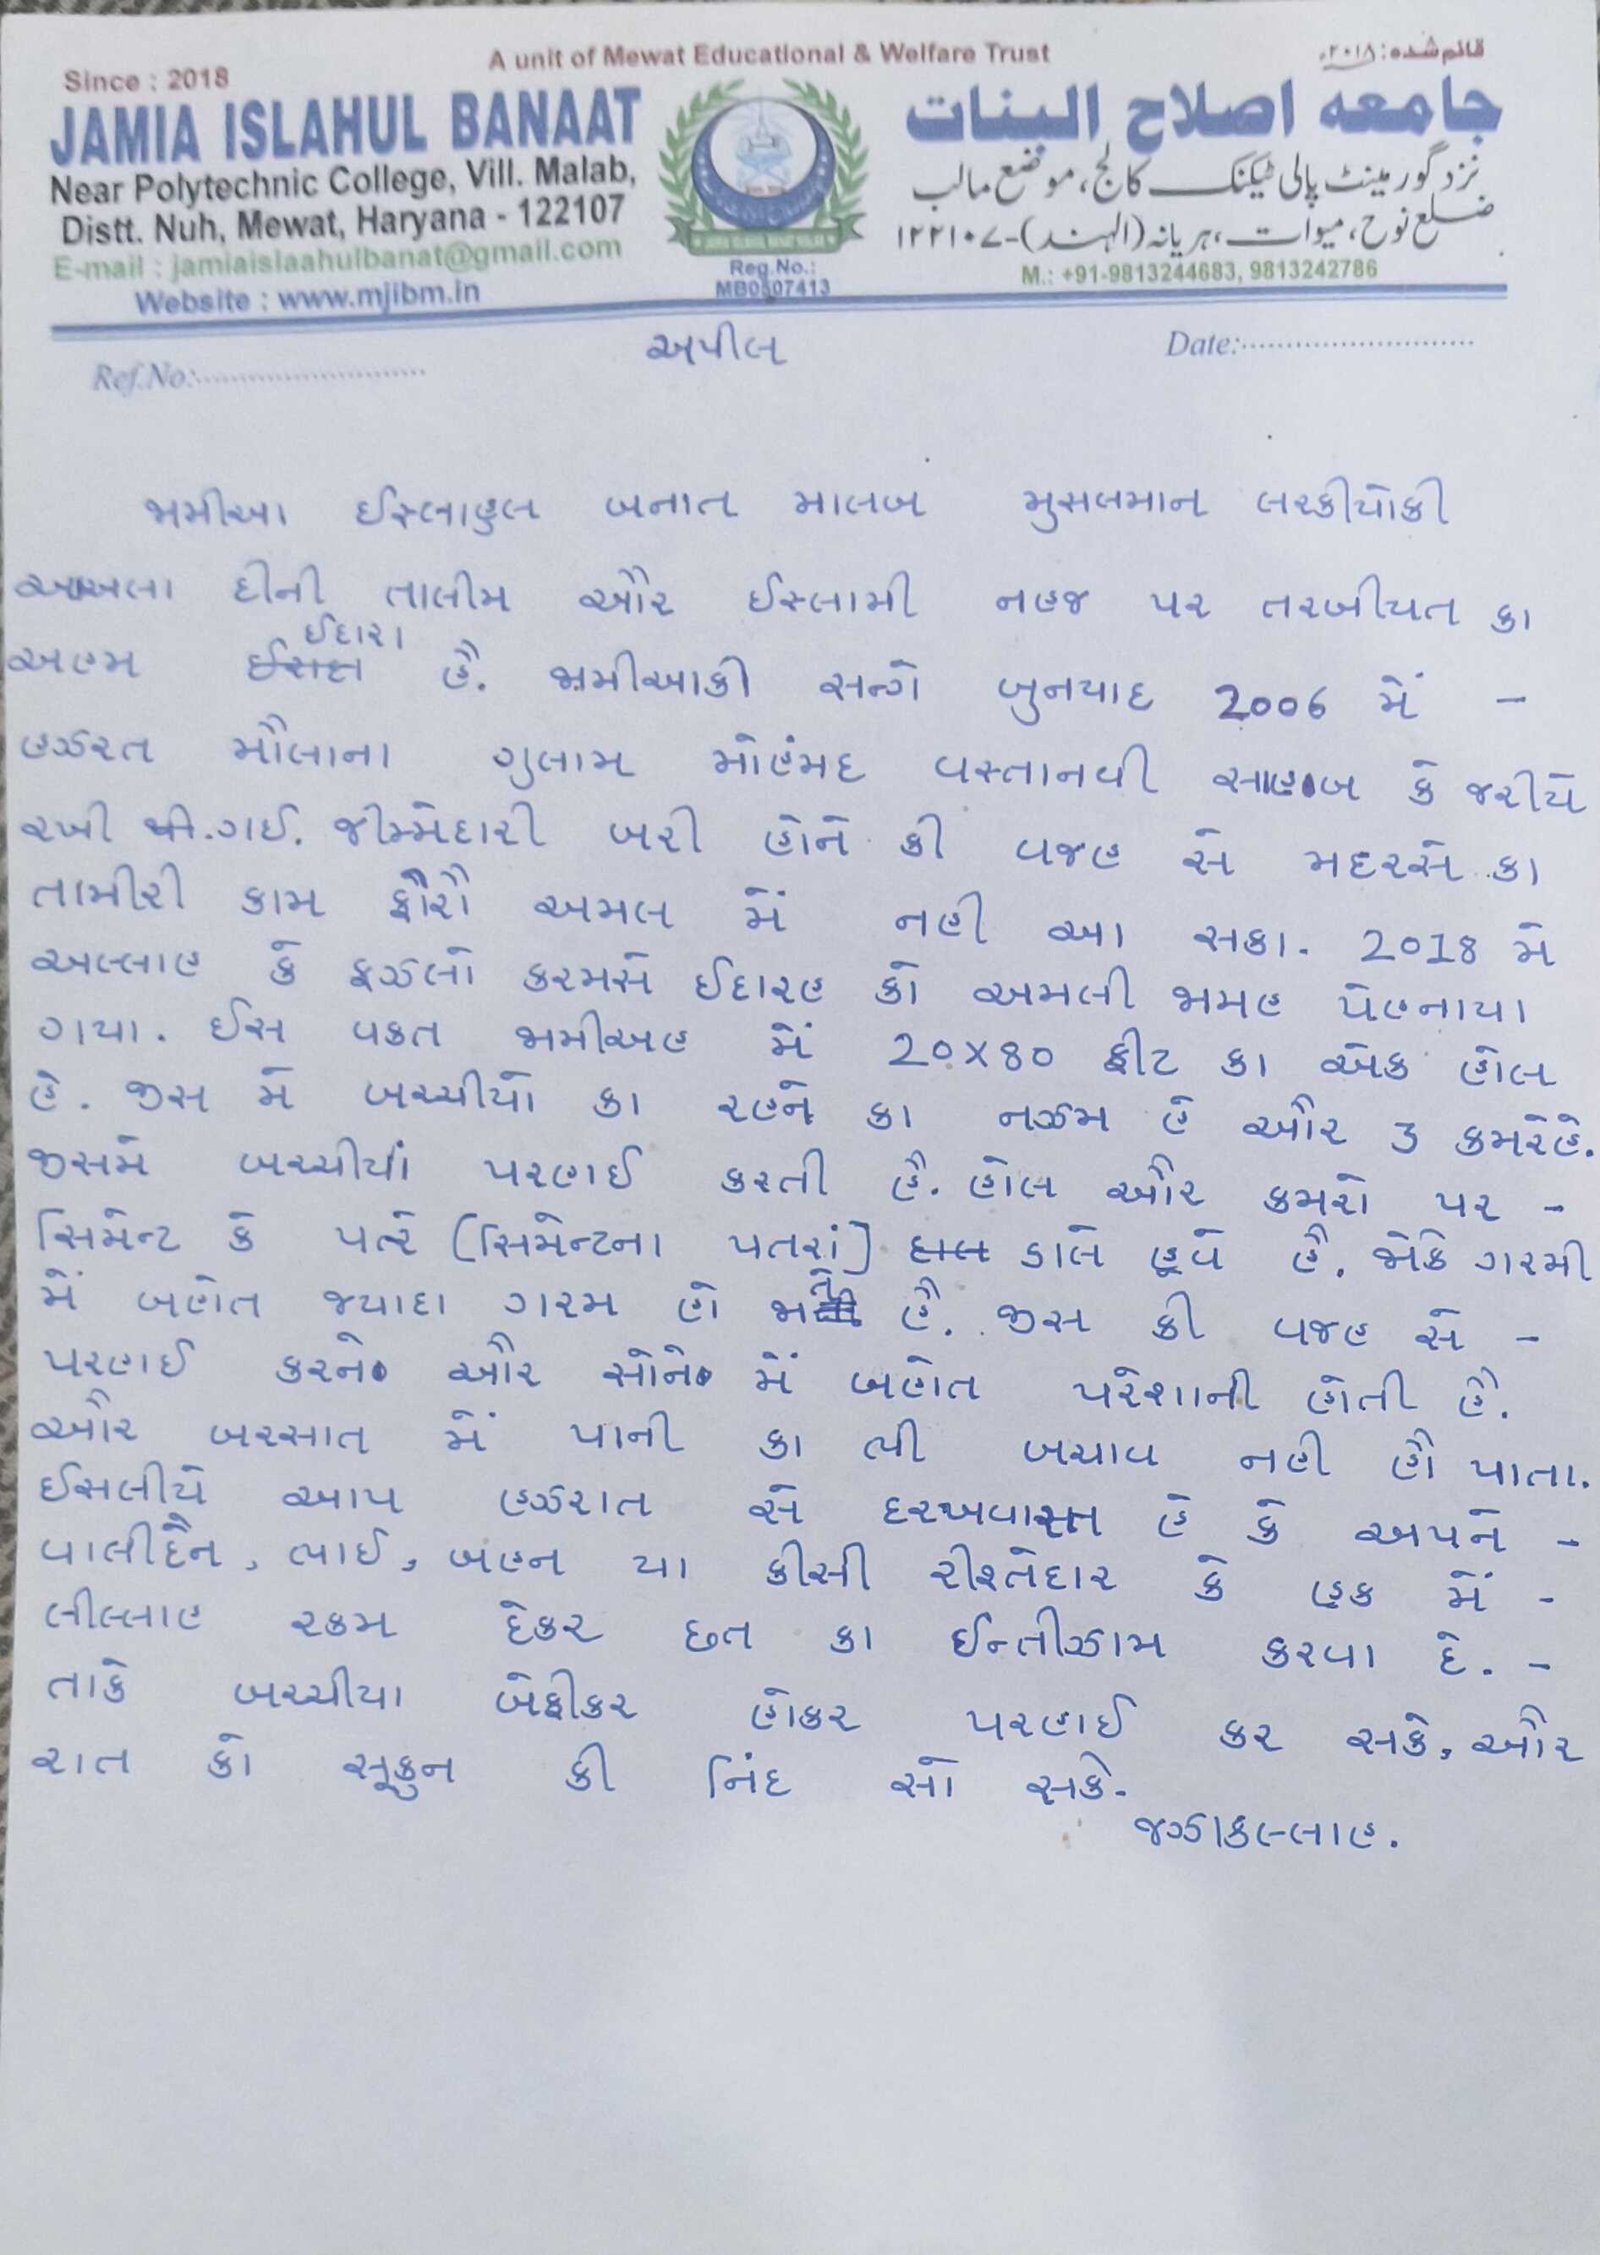 A unit of Mewat Educational & Welfare Trust
Since : 2018
قائم شدہ: ۲۰۱۸ء
JAMIA ISLAHUL BANAAT
جامعه اصلاح البنات
Near Polytechnic College, Vill. Malab,
نزد گورمینٹ پالی ٹیکنک کالج، موضع مالب
Distt. Nuh, Mewat, Haryana - 122107
ضلع نوح، میوات، ہریانہ (الہند)-۱۲۲۱۰۷
E-mail : jamiaislaahulbanat@gmail.com
M.: +91-9813244683, 9813242786
Website : www.mjibm.in
Reg.No.:
MB0507413
Ref.No:
અપીલ
Date:
જામીઆ ઈસ્લાહુલ બનાત માલબ મુસલમાન લરકીયોકી
આઅલા દીની તાલીમ ઔર ઈસ્લામી નહજ પર તરબીયત કા
અહમ ઈદારા હૈ. જામીઆકી સન્ગે બુનયાદ 2006 મેં -
હઝરત મૌલાના ગુલામ મોહંમદ વસ્તાનવી સાહબ કે જરીયે
રખી ગઈ. જીમ્મેદારી બરી હોને કી વજહ સે મદરસે કા
તામીરી કામ ફૌરૌ અમલ મેં નહી આ સકા. 2018 મે
અલ્લાહ કે ફઝલો કરમસે ઈદારહ કો અમલી જામહ પેહનાયા
ગયા. ઈસ વકત જામીઅહ મેં 20x80 ફીટ કા એક હોલ
હે. જીસ મે બચ્ચીયો કા રહને કા નઝમ હે ઔર 3 કમરેહે.
જીસમે બચ્ચીયાં પરહાઈ કરતી હૈ. હોલ ઔર કમરો પર -
સિમેન્ટ કે પત્રે (સિમેન્ટના પતરાં) ડાલે હૂવે હૈ. જોકે ગરમી
મેં બહોત જ્યાદા ગરમ હો જાતે હૈ. જીસ કી વજહ સે -
પરહાઈ કરને ઔર સોને મેં બહોત પરેશાની હોતી હૈ.
ઔર બરસાત મેં પાની કા ભી બચાવ નહી હૌ પાતા.
ઈસલીયે આપ હઝરાત સે દરખવાસ્ત હે કે અપને -
વાલીદૈન, ભાઈ, બહન યા કીસી રીશ્તેદાર કે હક મેં -
લીલ્લાહ રકમ દેકર છત કા ઈન્તીઝામ કરવા દે. -
તાકે બચ્ચીયા બેફીકર હોકર પરહાઈ કર સકે, ઔર
રાત કો સૂકુન કી નિંદ સો સકે.
જઝાકલ્લાહ.